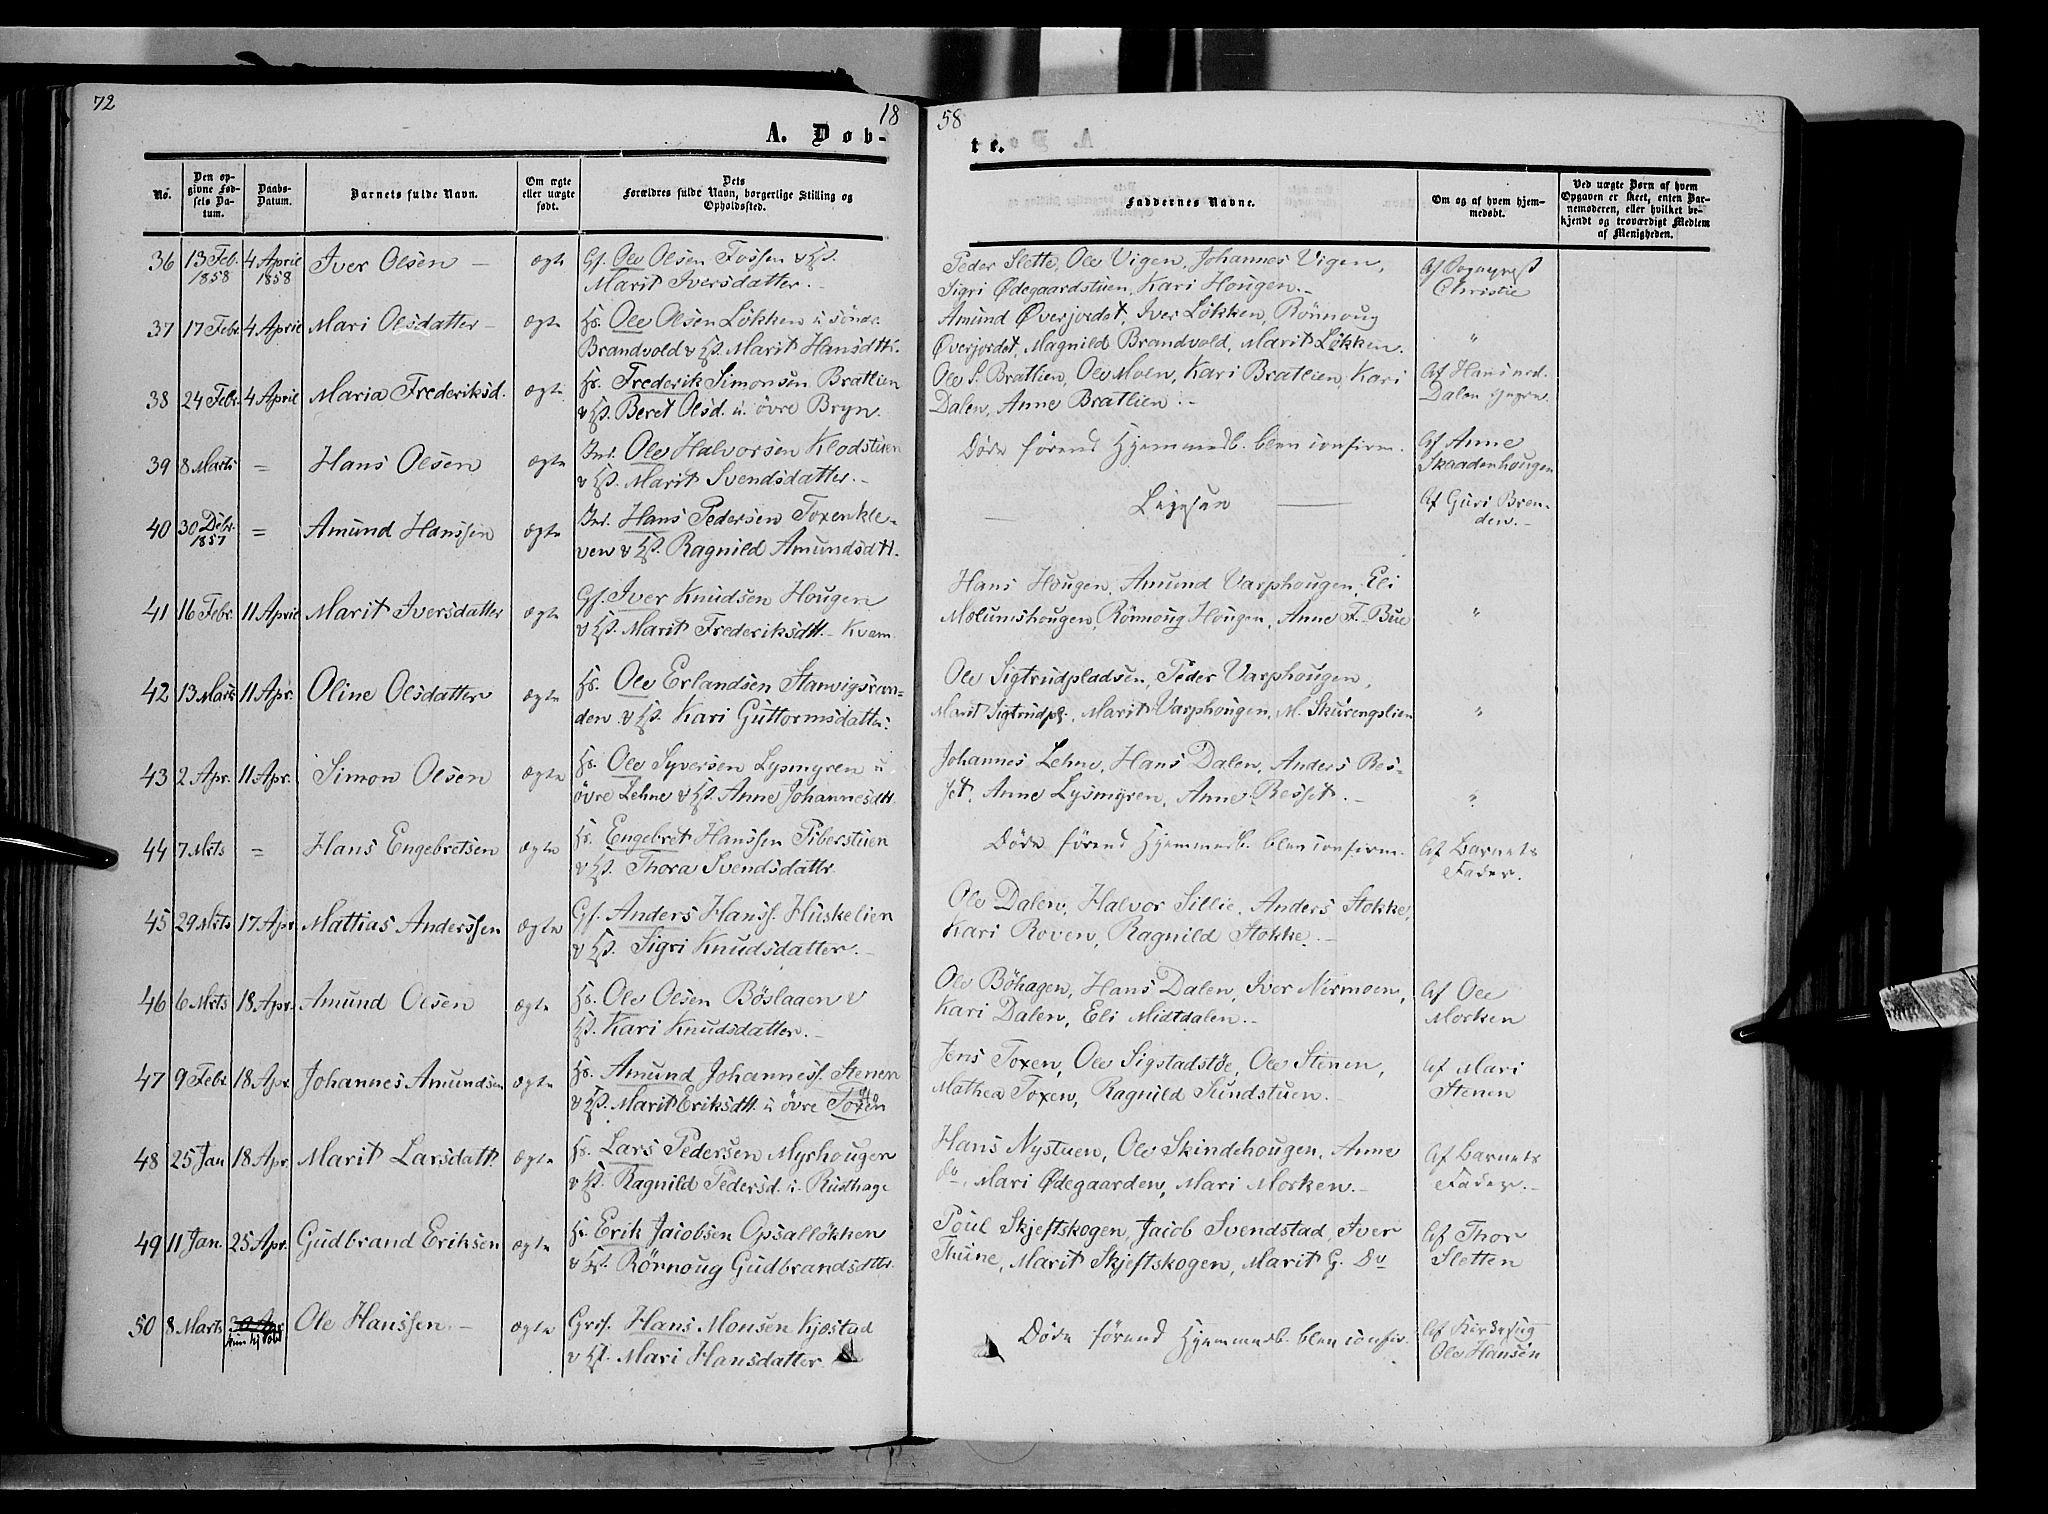 72
18
58
A. Døb-
te.
No.
Den op-
givne Fød-
sels Da-
tum.
Daabs-
Datum.
Barnets fulde Navn.
Om ægte
eller uægte
født.
Dets
Forældres fulde Navn, borgerlige Stilling og
Opholdssted.
Faddernes Navne.
Om og af hvem hjem-
medøbt.
Ved uægte Børn af hvem
Opgaven er skeet, enten Bar-
nemoderen, eller hvilket be-
kjendt og troværdigt Medlem
af Menigheden.
36 13 Feb. 1858 4 April 1858 Iver Olsen – ægte
Gf. Ole Olsen Fossen
Marit Iversdatter.
Peder Slette, Ole Vigen, Johannes Vigen,
Sigri Ødegaardstuen, Kari Hougen.
Af Sogneprest
Christie
37 17 Febr 4 April Mari Olsdatter – ægte
Hs. Ole Olsen Løkken u søndr.
Brandvold v Hst. Marit Hansdttr.
Amund Øverjordet, Iver Løkken, Rönnoug
Øverjordet, Magnild Brandvold, Marit Løkken.
"
38 24 Febr 4 April Maria Frederiksd. ægte
Hs. Frederik Simonsen Bratlien
v Hst. Beret Olsd. u. övre Bryn.
Ole S. Bratlien, Ole Moen, Kari Bratlien, Kari
Dalen, Anne Bratlien.
Af Hans ned.
Dalen
39 8 Marts = Hans Olsen ægte
Inr. Ole Halvorsen Klodstuen
v Hst. Marit Svendsdatter.
Døde førend Hjemmedb. blev confirm.
Af Anne
Skaadenhougen
40 30 Dcbr. 1857 = Amund Hanssen ægte
Inr. Hans Pedersen Toxenkle-
ven v Hst. Ragnild Amundsdtt.
Af Guri Bren-
den.
41 16 Febr. 11 April Marit Iversdatter ægte
Gf. Iver Knudsen Hougen
v Hst. Marit Frederiksdtt. Kvam
Hans Hougen, Amund Varphougen, Eli
Molumshougen, Rönnoug Hougen, Anne F. Bue
"
42 13 Marts 11 Apr. Oline Olsdatter ægte
Hs. Ole Erlandsen Stanvigsran-
den v Hst. Kari Guttormsdatter.
Ole Sigtrudpladsen, Peder Varphougen,
Marit Sigtrudpl., Marit Varphougen, M. Skurengslien
"
43 2 Apr. 11 Apr. Simon Olsen ægte
Hs. Ole Syversen Lysmyren u
övre Lehne v Hst. Anne Johannesdtt.
Johannes Lehne, Hans Dalen, Anders Res-
set, Anne Lysmyren, Anne Resset.
"
44 7 Mrts = Hans Engebretsen ægte
Hs. Engebret Hanssen Piberstuen
v Hst. Thora Svendsdattr.
Døde førend Hjemmedb. blev confirm.
Af Barnets
Fader.
45 29 Mrts 17 Apr. Mattias Anderssen ægte
Gf. Anders Hanss. Huskelien
v Hst. Sigri Knudsdatter.
Ole Dalen, Halvor Sillie, Anders Stokke,
Kari Roven, Ragnild Stokke.
46 6 Mrts 18 Apr. Amund Olsen ægte
Hs. Ole Olsen Böslaaen v
Hst. Kari Knudsdatter.
Ole Böhagen, Hans Dalen, Iver Nermoen,
Kari Dalen, Eli Midtdalen.
Af Ole
Morken
47 9 Febr 18 Apr. Johannes Amundsen ægte
Hs. Amund Johanness. Stenen
v Hst. Marit Eriksdtt. u övre Toxen
Jens Toxen, Ole Sigstadstøe, Ole Stenen,
Mathea Toxen, Ragnild Sundstuen.
Af Mari
Stenen
48 25 Jan 18 Apr. Marit Larsdatt. ægte
Hs. Lars Pedersen Myrhougen
v Hst. Ragnild Pedersd. u. Rusthage
Hans Nystuen, Ole Skindehougen, Anne
do, Mari Ødegaarden, Mari Morken.
Af Barnets
Fader.
49 11 Jan. 25 Apr. Gudbrand Eriksen ægte
Hs. Erik Jacobsen Opsalløkken
v Hst. Rönnoug Gudbrandsdttr.
Poul Skjeftskogen, Jacob Svendstad, Iver
Thune, Marit Skjeftskogen, Marit G. Do
Af Thor
Sletten
50 8 Marts Ole Hanssen. – ægte
Hans Monsen Kjøstad
v Hst. Mari Hansdatter.
Døde førend Hjemmedb. blev confir.
Af Kirkesug
Ole Hansen